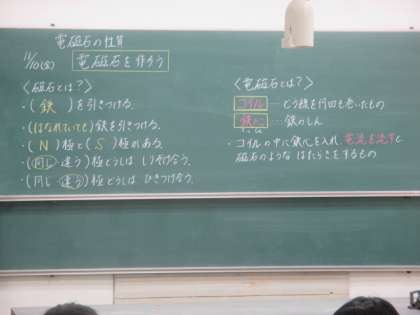 電磁石の性質
11/10(金) 電磁石を作ろう
〈磁石とは?〉
・(鉄)を引きつける。
・(はなれていても)鉄を引きつける。
・(N)極と(S)極がある。
・(同じ 違う)極どうしは、しりぞけ合う。
・(同じ 違う)極どうしは、ひきつけ合う。
〈電磁石とは?〉
コイル…どう線を何回も巻いたもの
鉄心…鉄のしん
てっしん
・コイルの中に鉄心を入れ、電流を流すと
磁石のような はたらきをするもの